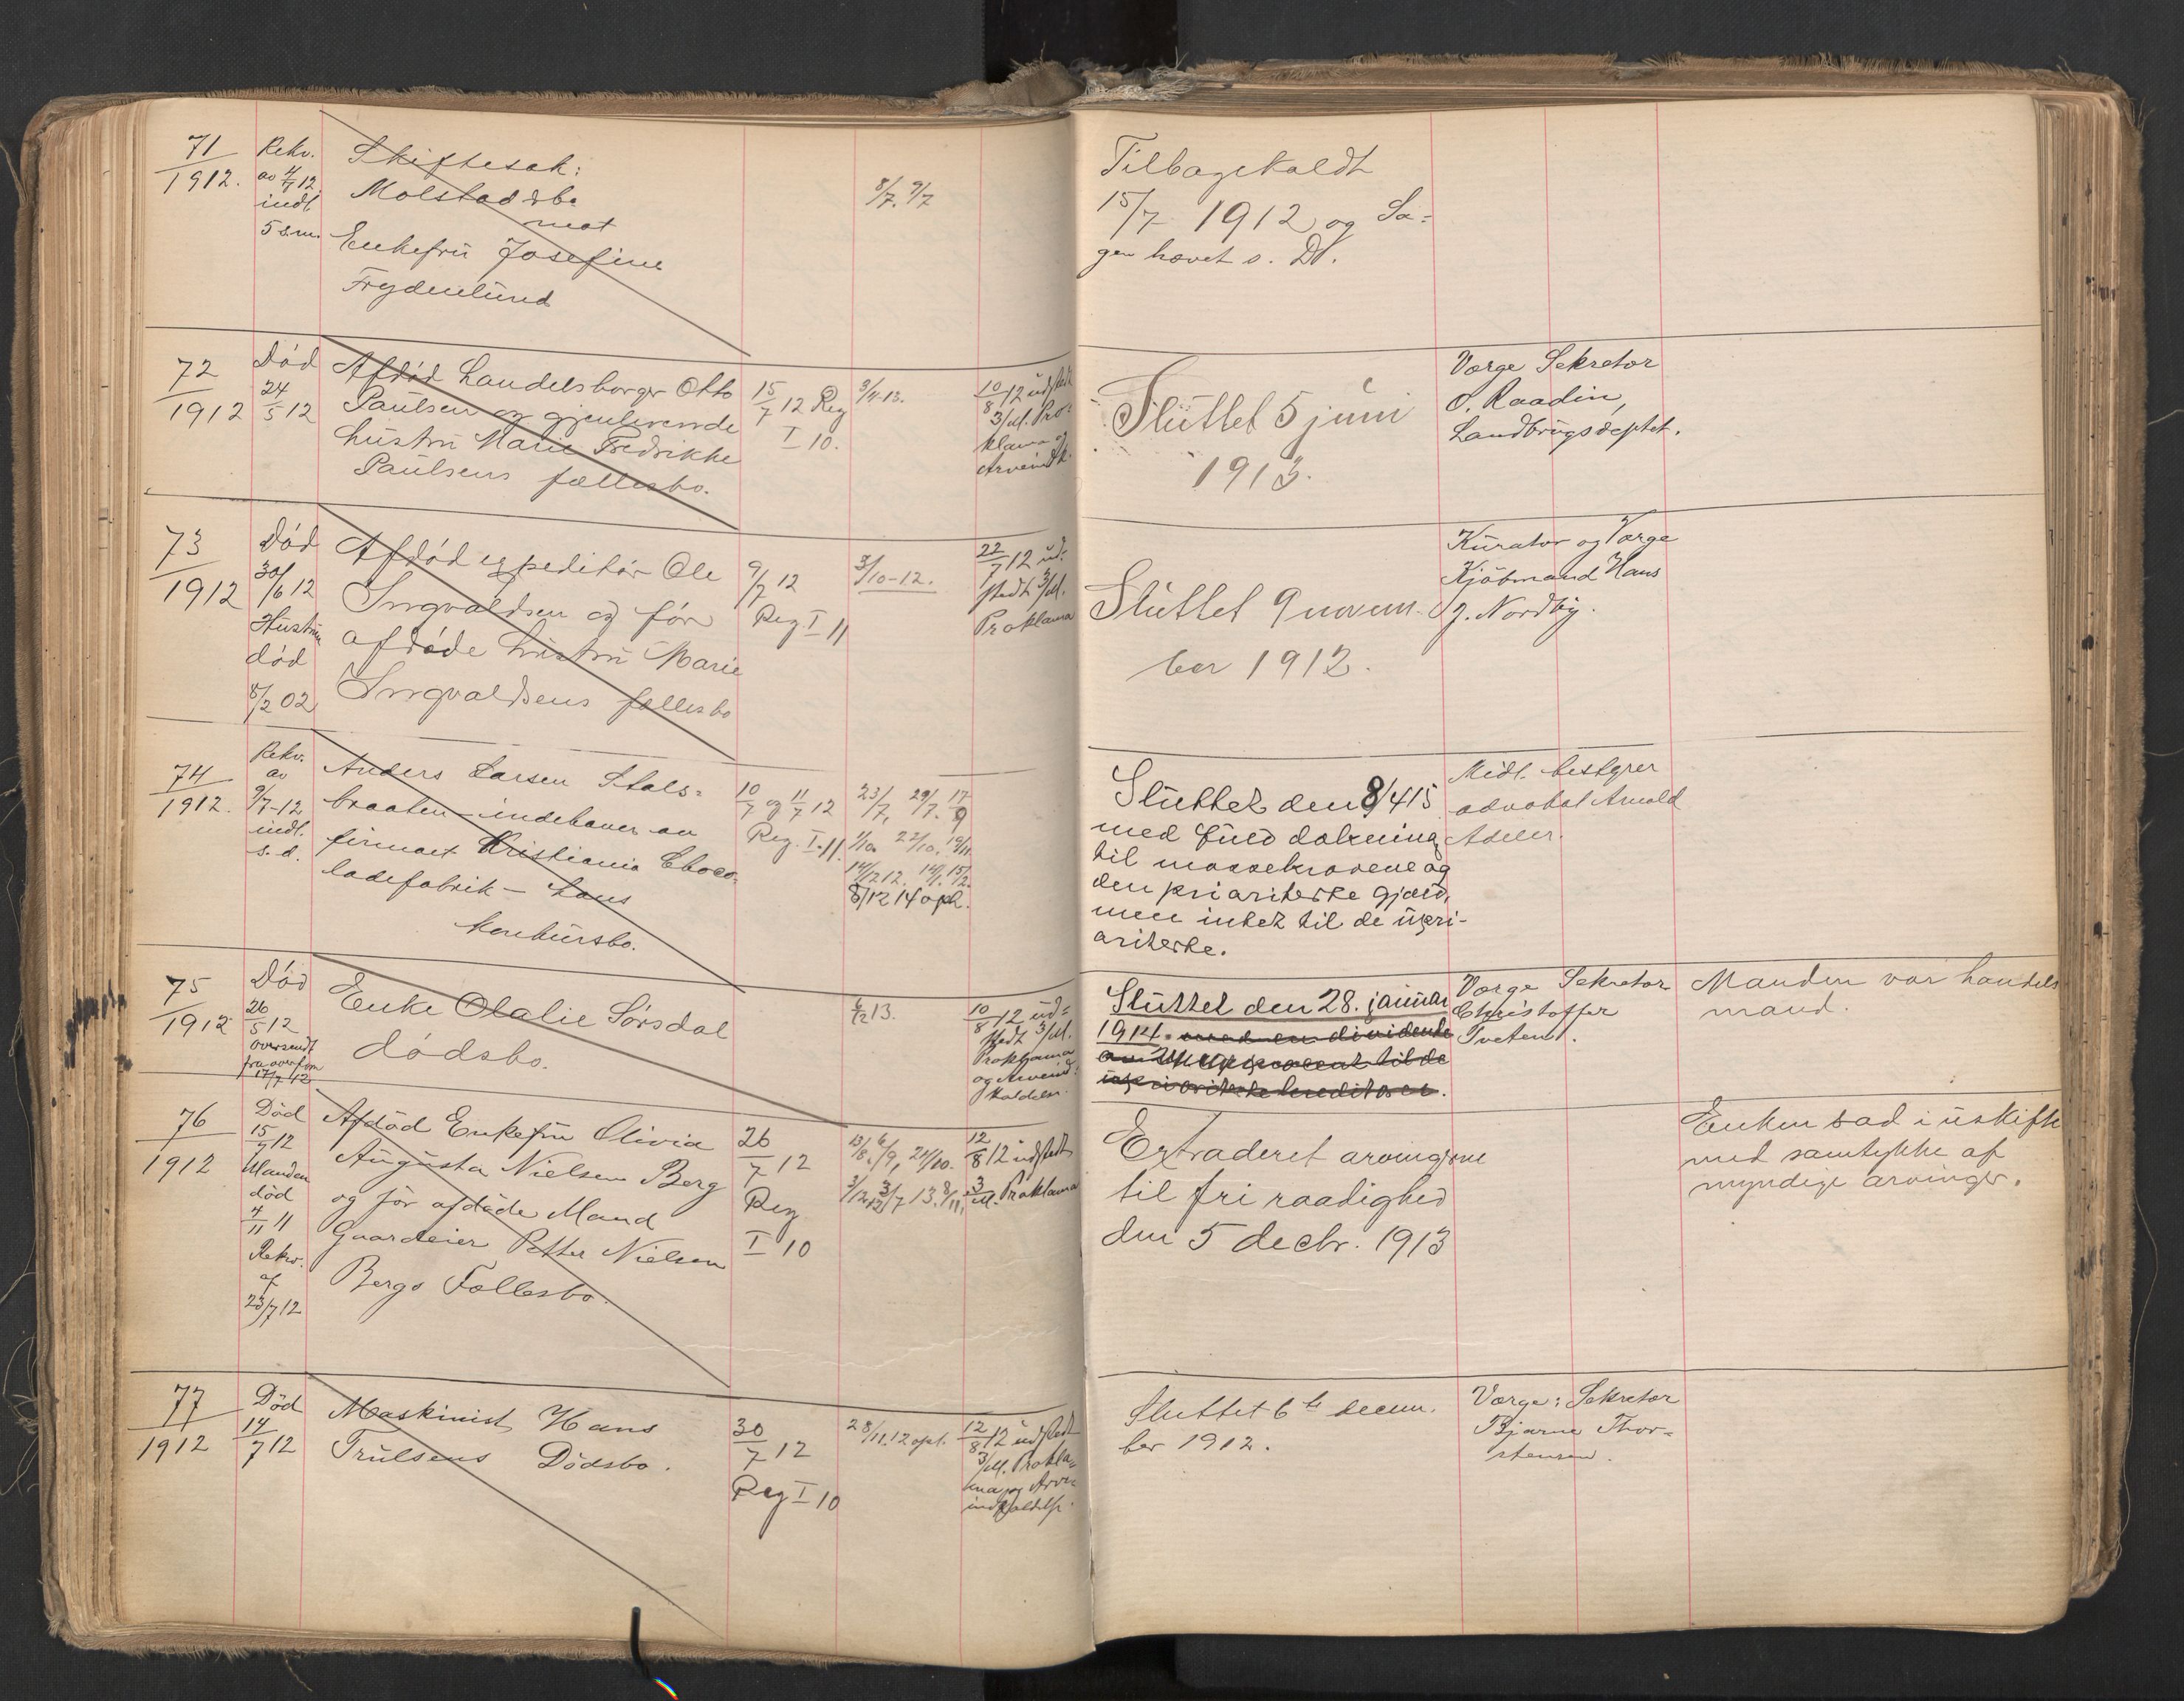 71
1912.
Rekv.
av 4/7 12
indl.
5 s.m.
Skiftesak:
Molstad dbo
mot
Enkefru Josefine
Frydenlund
8/7. 9/7
Tilbagekaldt
15/7 1912 og Sa-
gen hævet s. D.
72
1912
Död
24/5 12
Afdöd Handelsborger Otto
Paulsen og gjenlevende
hustru Marie Fredrikke
Paulsens fællesbo.
15/7 12 Reg
I 10.
3/4 13.
10/8 12 udstedt
3/M. Pro-
klama og
Arveindk.
Sluttet 5 juni
1913.
Værge Sekretær
O. Raadin,
Landbrugsdeptet.
73
1912
Död
30/6 12
Hustru
död
8/2 02
Afdöd expeditör Ole
Ingvaldsen og för
afdöde hustru Marie
Ingvaldsens fællesbo
9/7 12
Reg. I 11
3/10-12.
22/7 12 ud-
stedt 3/M.
Proklama
Sluttet 9 novem-
ber 1912.
Kurator og Værge
Kjöbmand Hans
J. Nordby.
74
1912.
Rekv.
av
9/7-12
indl.
s. d.
Anders Larsen Stals-
braaten - indehaver av
firmaet Kristiania Choco-
ladefabrik - Hans
konkursbo.
10/7 og 11/7 12
Reg. I-11.
23/7, 29/7. 17/9
1/10 22/10. 19/11
14/12 12. 14/1. 15/2.
8/12 14 oph.
Sluttet den 8/4 15
med fuld dækning
til massekravene og
den prioriterte gjæld,
men intet til de upri-
oriterte.
Midl. bestyrer
advokat Arnold
Adeler.
75
1912
Död
26/5 12
oversendt
fra overform
17/7 12
Enke Olalie Sörsdal
dödsbo.
6/2 13.
10/8 12 ud-
stedt 3/M.
Proklama
og Arveind-
kaldelse.
Sluttet den 28. januar
1914. med en dividende
procent til de
uprioriterte kreditorer.
Værge Sekretær
Christoffer
Tveten.
Manden var handels
mand.
76
1912
Död
15/7 12
Manden
död
4/11 11
Rekv.
af
23/7 12
Afdöd Enkefru Olivia
Augusta Nielsen Berg
og för afdöde Mand
Gaardeier Petter Nielsen
Bergs Fællesbo.
26/7 12
Reg
I 10
13/8. 6/9, 24/10.
3/12 12 3/7 13. 8/11.
12/8 12 udstedt
3/M. Proklama
Extraderet arvingerne
til fri raadighed
den 5 decbr. 1913
Enken sad i uskifte
med samtykke af
myndige arvinger.
77
1912
Död
14/7 12
Maskinist Hans
Trulsens Dödsbo.
30/7 12
Reg I 10
28/11. 12 opt.
12/8 12 udstedt
3/M. Prokla-
ma og Arve-
indkaldelse.
Sluttet 6te decem-
ber 1912.
Værge: Sekretær
Bjarne Thor-
stensen.